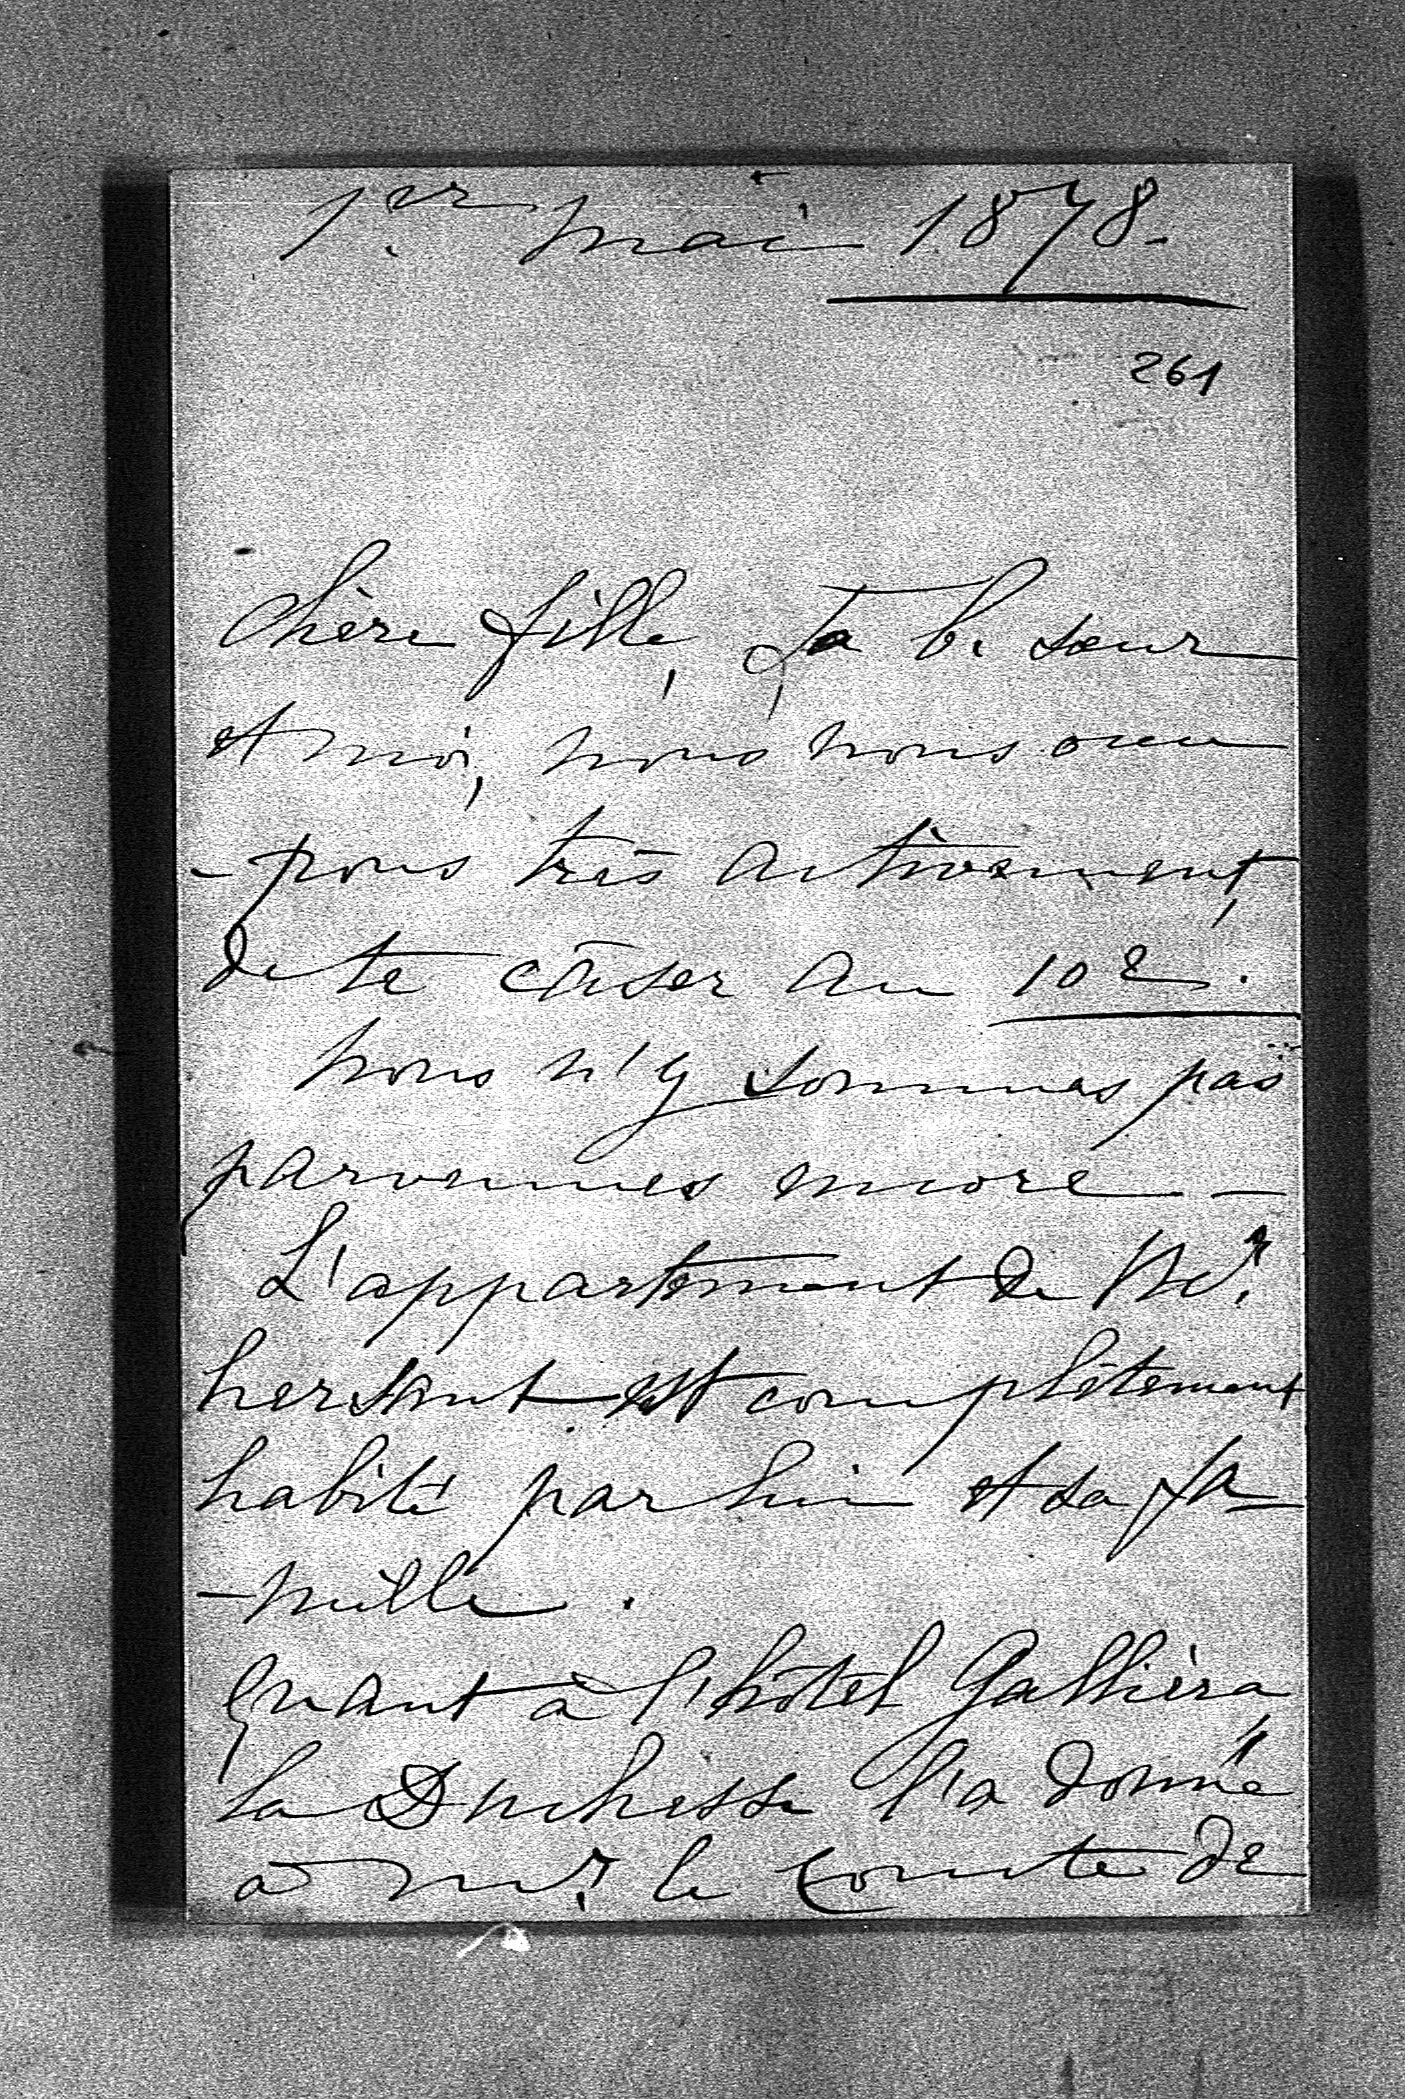 1er mai 1878.
261
Chère fille, ta b. sœur
et moi, nous nous occu
-pons très activement,
de te caser au 10e.
nous n'y sommes pas
parvenues encore -
L'appartement de Mr.
hersant est complètement
habité par lui et sa fa
-mille.
Quant à l'hôtel Galliéra,
la Duchesse l'a donné
à Mr. le Comte de